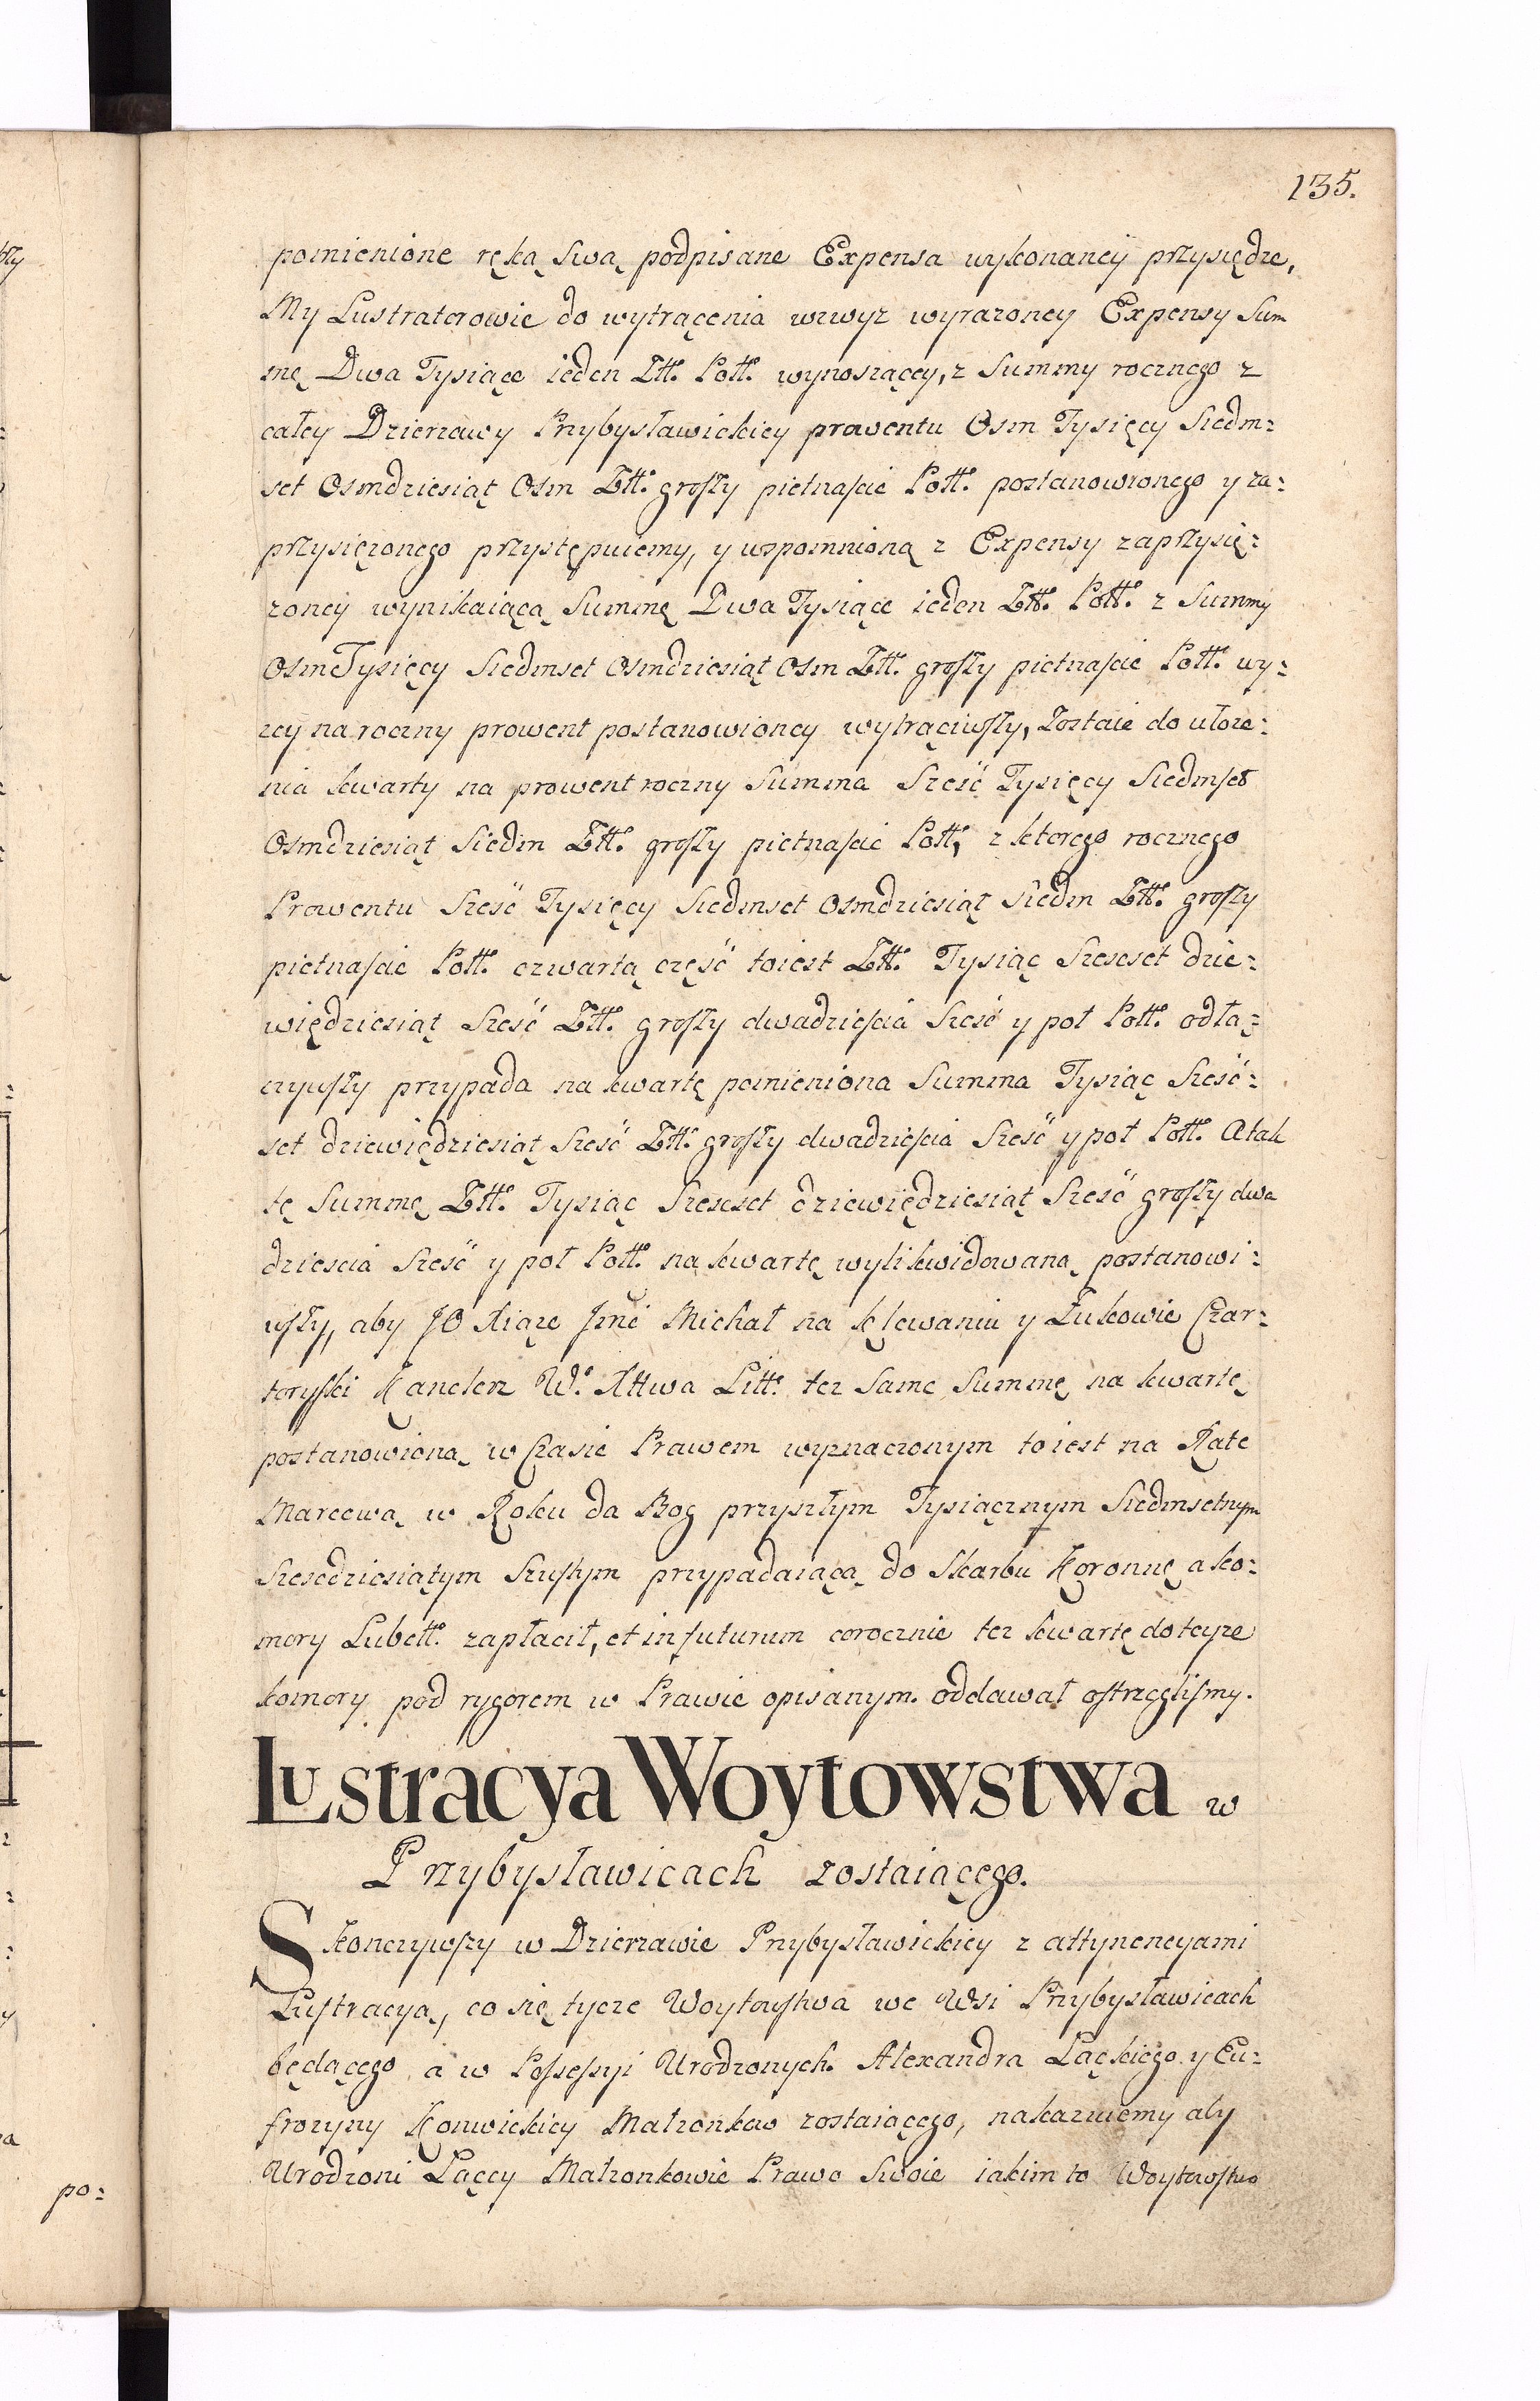 135.
pomienione ręką Swą podpisane Expensa wykonaney przysiędze,
My Lustratorowie do wytrącenia wzwyz wyrazoney Expensy Sum
mę Dwa Tysiące ieden Złł. Poll. wynoszącey, z Summy rocznego z
całey Dzierzawy Przybysławickiey prowentu Osm Tysięcy Siedm=
set Osmdziesiąt Osm Złł. groszy pietnaście Poll. postanowionego y za=
przysięzonego przystępuiemy, y wspomnioną z Expensy zaprzysię=
zoney wynikaiącą Summę Dwa Tysiące ieden Złł. Poll. z Summy
Osm Tysięcy Siedmset Osmdziesiąt Osm Złł. groszy pietnaście Poll. wy=
zey na roczny prowent postanowioney wytrąciwszy, Zostaie do ułoze=
nia kwarty na prowent roczny Summa Sześć Tysięcy Siedmset
Osmdziesiąt Siedm Złł. groszy pietnaście Poll, z ktorego rocznego
Prowentu Sześć Tysięcy Siedmset Osmdziesiąt Siedm Złł. groszy
pietnaście Poll. czwartą część toiest Złł. Tysiąc Szescset dzie=
więdziesiąt Sześć Złł. groszy dwadzieścia Sześć y poł Poll. odłą=
czywszy przypada na kwartę pomieniona Summa Tysiąc Sześć=
set dziewiędziesiąt Sześć Złł. groszy dwadzieścia Sześć y poł Poll. Atak
tę Summę Złł. Tysiąc Szescset dziewiędziesiąt Sześć groszy dwa
dziescia Sześć y poł Poll. na kwartę wylikwidowaną postanowi=
wszy, aby JO Xiąze Jmć Michał na Klewaniu y Zukowie Czar=
toryski Kanclerz W. Xttwa Litt. tez Same Summę na kwartę
postanowioną w Czasie Prawem wyznaczonym to iest na Ratę
Marcową w Roku da Bog przyszłym Tysiącznym Siedmsetnym
Szescdziesiątym Szustym przypadaiącą do Skarbu Koronnę a ko=
mory Lubell. zapłacił, et in futurum corocznie tez kwartę do teyze
komory pod rygorem w Prawie opisanym oddawał ostrzegliśmy.
Lustracya Woytowstwa w
Przybysławicach zostaiącego.
Skonczywszy w Dzierzawie Przybysławickiey z attynencyami
Lustracyą, co się tycze Woytowstwa we Wsi Przybysławicach
będącego a w Possessyi Urodzonych Alexandra Łąckiego y Eu=
frozyny Konwickiey Małzonkow zostaiącego, nakazuiemy aby
Urodzoni Łąccy Małzonkowie Prawo Swoie iakim to Woytowstwo
po=